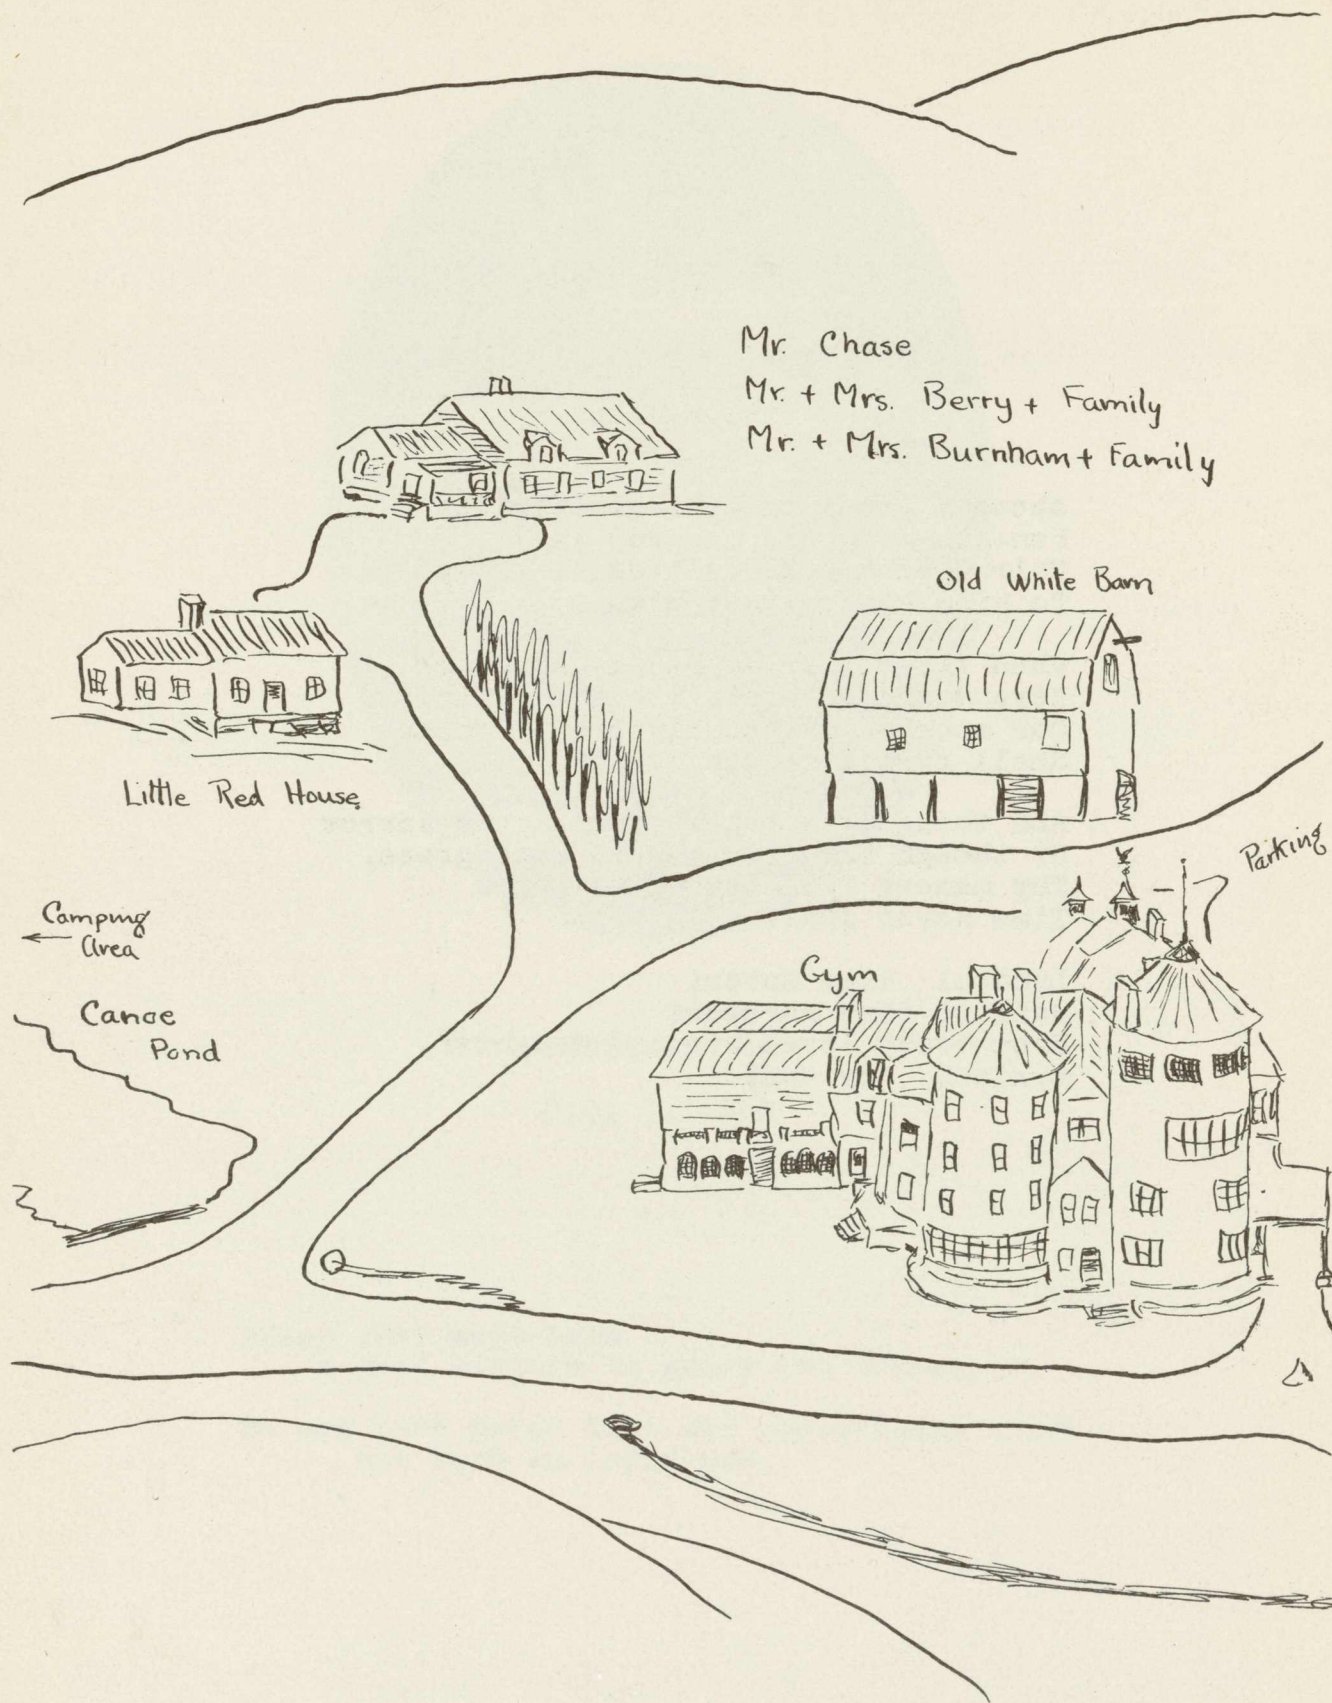 Mr. Chase
Mr. + Mrs. Berry + Family
Mr. + Mrs. Burnham + Family
Old White Barn
Little Red House
Parking
Camping
Area
Gym
Canoe
Pond